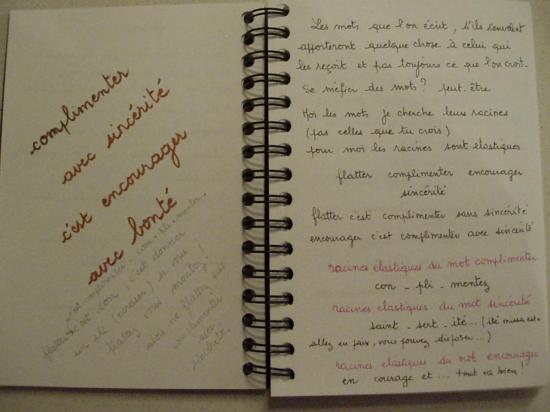 complimenter
avec sincérité
c'est encourager
avec bonté
Les mots que l'on écrit, s'ils s'envolent
apporteront quelque chose à celui qui
les reçoit et pas toujours ce que l'on croit.
Se méfier des mots? peut-être
Moi les mots je cherche leurs racines
(pas celles que tu crois)
pour moi les racines sont élastiques
flatter complimenter encourager
sincérité
flatter c'est complimenter sans sincérité
encourager c'est complimenter avec sincérité
racines élastiques du mot complimenter
con - pli - mentez
racines élastiques du mot sincérité
saint - sert - ité... (ité missa est -
allez en paix, vous pouvez disposer...)
racines élastiques du mot encourager
en courage et ... tout va bien!